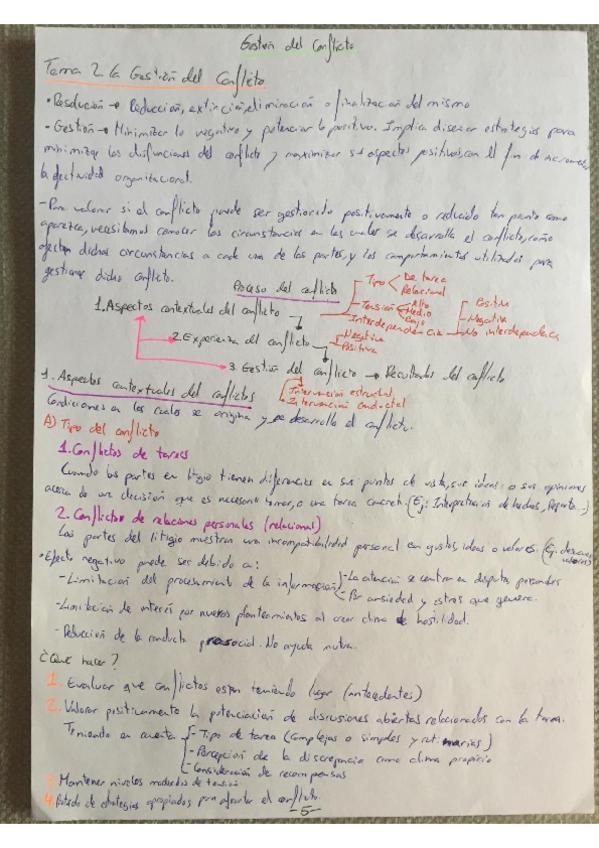 Gestión del Conflicto
Tema 2. La Gestión del Conflicto
• Resolución → Reducción, extinción, eliminación o finalización del mismo
- Gestión → Minimizar lo negativo y potenciar lo positivo. Implica diseñar estrategias para
minimizar las disfunciones del conflicto y maximizar sus aspectos positivos, con el fin de incrementar
la efectividad organizacional.
- Para valorar si el conflicto puede ser gestionado positivamente o reducido tan pronto como
aparezca, necesitamos conocer las circunstancias en las cuales se desarrolla el conflicto, como
afectan dichas circunstancias a cada una de las partes, y los comportamientos utilizados para
gestionar dicho conflicto.
Proceso del conflicto
Tipo
De tarea
Relacional
1. Aspectos contextuales del conflicto
Tensión
Alto
Medio
Bajo
Interdependencia
Positiva
Negativa
No interdependencia
2. Experiencia del conflicto
Negativa
Positiva
3. Gestión del conflicto → Resultados del conflicto
Intervención estructural
Intervención conductual
1. Aspectos contextuales del conflictos
Condiciones en las cuales se origina y se desarrolla el conflicto.
A) Tipo del conflicto
1. Conflictos de tareas
Cuando las partes en litigio tienen diferencias en sus puntos de vista, sus ideas o sus opiniones
acerca de una decisión que es necesario tomar, o una tarea concreta. (Ej: Interpretación de hechos, Reparto...)
2. Conflictos de relaciones personales (relacional)
Las partes del litigio muestran una incompatibilidad personal en gustos, ideas o valores. (Ej: valores)
• Efecto negativo puede ser debido a:
- Limitación del procesamiento de la información
- La atención se centra en disputas personales
- Por ansiedad y estrés que genera.
- Limitación de interés por nuevos planteamientos al crear clima de hostilidad.
- Reducción de la conducta prosocial. No ayuda mutua.
¿Qué hacer?
1. Evaluar que conflictos están teniendo lugar (antecedentes)
2. Valorar positivamente la potenciación de discusiones abiertas relacionados con la tarea.
Teniendo en cuenta
- Tipo de tarea (complejas o simples y rutinarias)
- Percepción de la discrepancia como clima propicio
- Consideración de recompensas
3. Mantener niveles moderados de tensión
4. de estrategias apropiadas para afrontar el conflicto
-5-